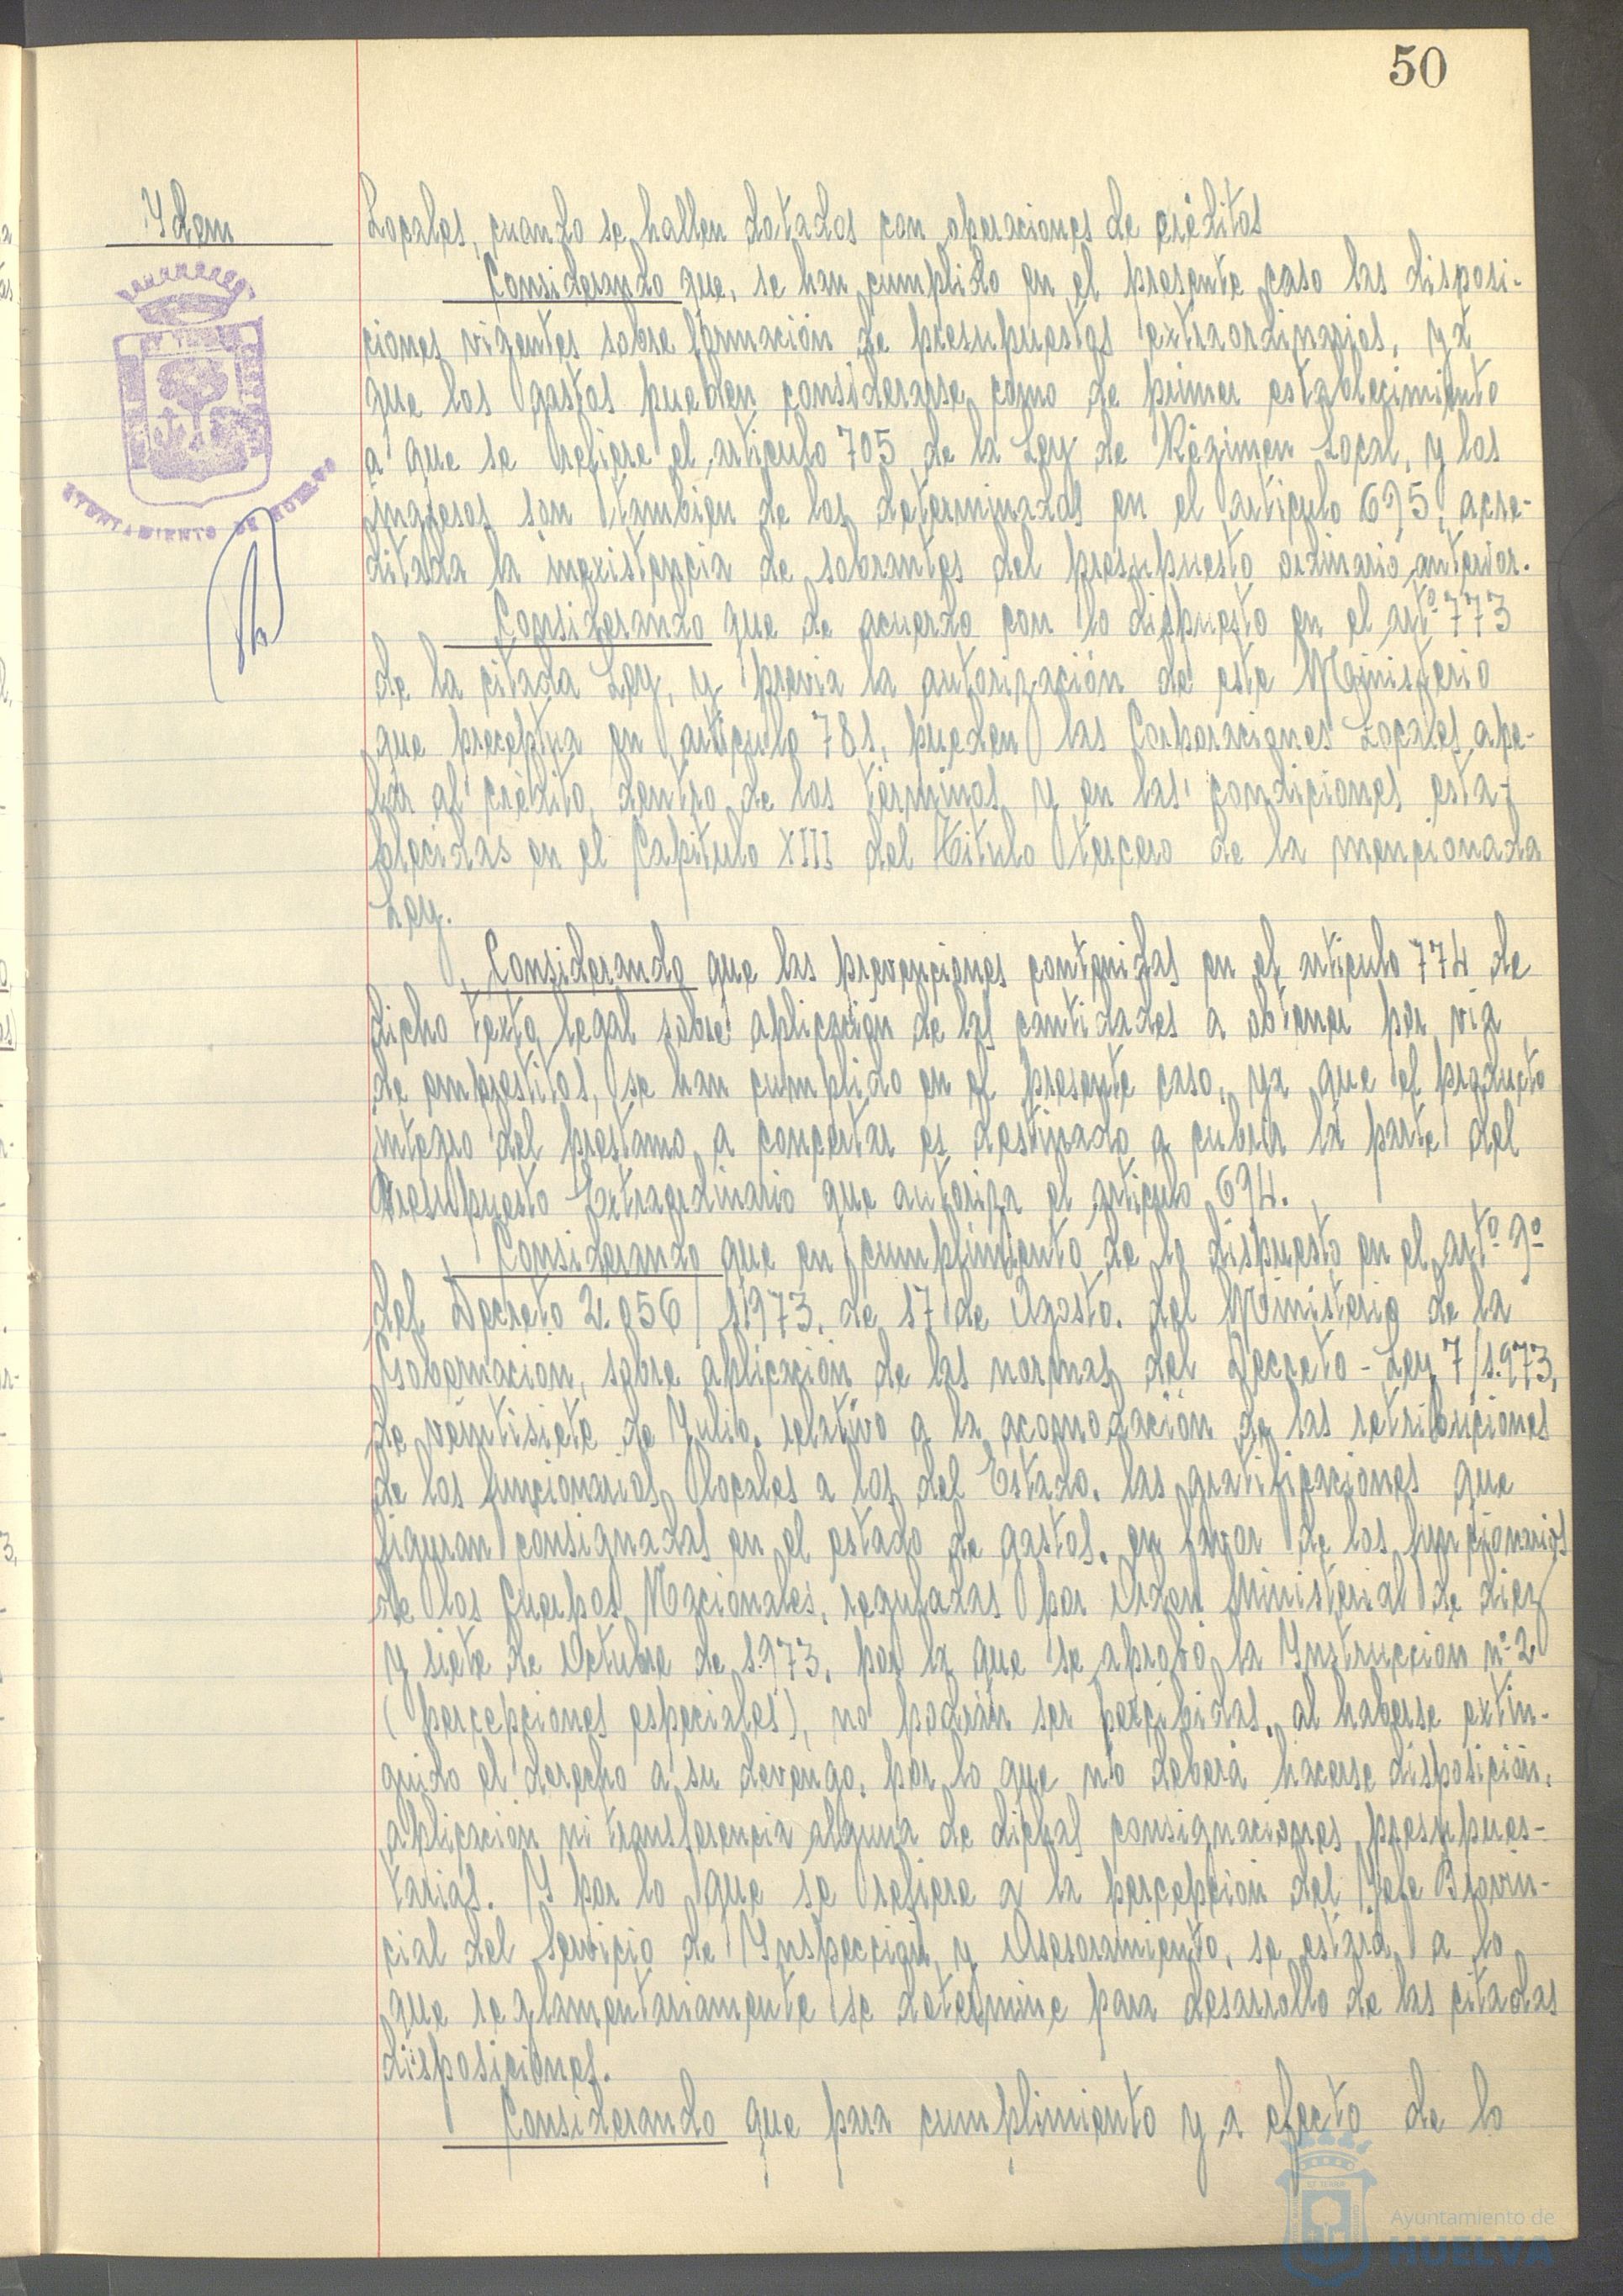 50
Ydem
Locales, cuando se hallen dotados con operaciones de créditos
Considerando que, se han cumplido en el presente caso las disposi-
ciones vigentes sobre formación de presupuestos extraordinarios, ya
que los gastos pueden considerarse como de primer establecimiento
a que se refiere el artículo 705 de la Ley de Régimen Local, y los
ingresos son tambien de los determinados en el artículo 695, acre-
ditada la inexistencia de sobrantes del presupuesto ordinario anterior.
Considerando que de acuerdo con lo dispuesto en el artº 773
de la citada Ley, y previa la autorización de este Ministerio
que preceptua en artículo 781, pueden las Corporaciones Locales ape-
lar al crédito, dentro de los términos y en las condiciones esta-
blecidas en el Capitulo XIII del titulo tercero de la mencionada
Ley.
Considerando que las prevenciones contenidas en el articulo 774 de
dicho texto legal sobre aplicación de las cantidades a obtener por via
de emprestitos, se han cumplido en el presente caso, ya que el producto
integro del prestamo a concertar es destinado a cubrir la parte del
Presupuesto Extraordinario que autoriza el artículo 694.
Considerando que en cumplimiento de lo dispuesto en el artº 9º
del Decreto 2.056/1973, de 17 de Agosto, del Ministerio de la
Gobernacion, sobre aplicación de las normas del Decreto-Ley 7/1.973,
de ventisiete de Julio, relativo a la acomodación de las retribuciones
de los funcionarios locales a los del Estado, las gratificaciones que
figuran consignadas en el estado de gastos, en favor de los funcionarios
de los Cuerpos Nacionales, reguladas por Orden Ministerial de diez
y siete de Octubre de 1.973, por la que se aprobó la Ynstrucción nº 2
(percepciones especiales), no podrán ser percibidas, al haberse extin-
guido el derecho a su devengo, por lo que no deberá hacerse disposición,
aplicación ni transferencia alguna de dichas consignaciones presupues-
tarias. Y por lo que se refiere a la percepción del Jefe Provin-
cial del Servicio de Ynspección y Asesoramiento, se estará a lo
que reglamentariamente se determine para desarrollo de las citadas
disposiciones.
Considerando que para cumplimiento y a efecto de lo
AYUNTAMIENTO DE HUELVA
Ayuntamiento de
HUELVA